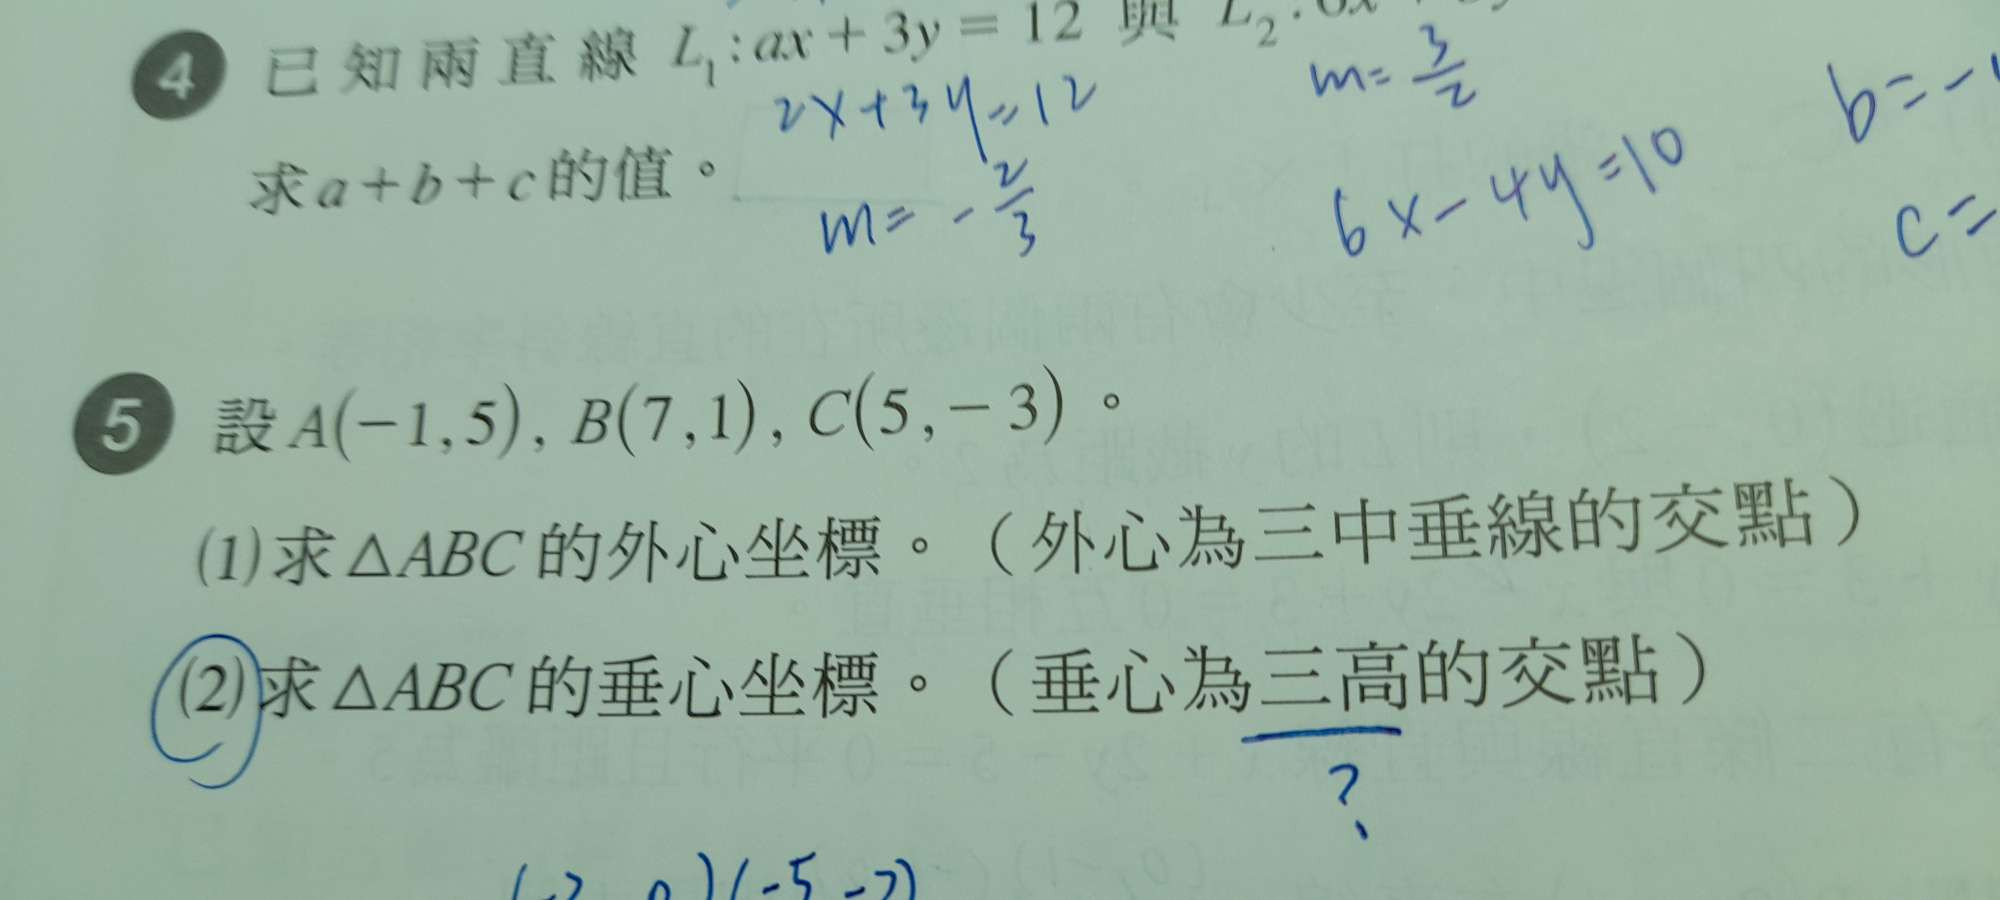 4 已知兩直線 L₁:ax+3y=12 與 L₂:6x
2x+3y=12
m=3/2
b=-
求a+b+c的值。
m=-2/3
6x-4y=10
c=
5 設A(-1,5), B(7,1), C(5,-3)。
(1)求△ABC的外心坐標。(外心為三中垂線的交點)
(2)求△ABC的垂心坐標。(垂心為三高的交點)
?